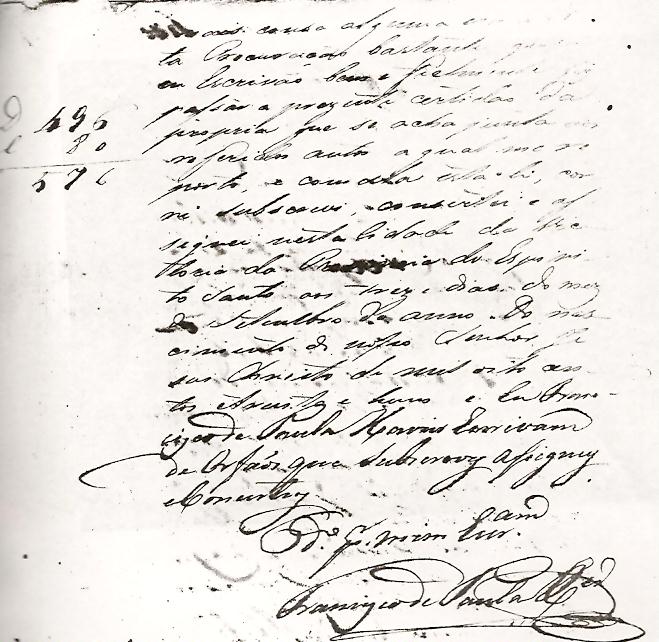 mais cousa alguma
ta Procuração bastante
eu Escrivão bem e fielmente fiz
passar a prezente certidão da
propria que se acha junta aos
referidos autos a qual me re
porto, e com ella esta li, cor
ri subscrevi, consertei e as
signei nesta Cidade da Vic
toria da Provincia do Espiri
to Santo aos treze dias do mez
de Setembro do anno do nas
cimento de nosso Senhor Je
sus Christo de mil oito cen
tos e trinta e hum e Eu Fran
cisco de Paula Escrivam
de Orfaõs que subscrevy asigney
e Concertey
P. mim Escr.am
Francisco de Paula
496
80
576